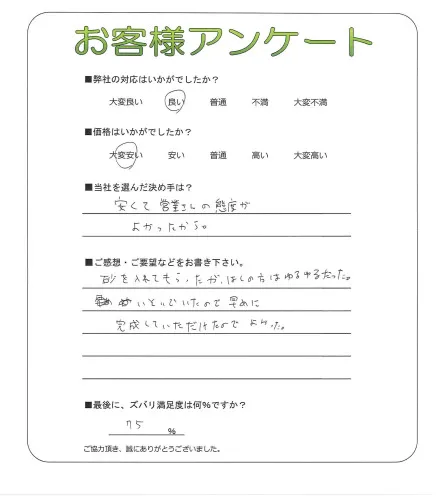 お客様アンケート
■弊社の対応はいかがでしたか？
大変良い 良い 普通 不満 大変不満
■価格はいかがでしたか？
大変安い 安い 普通 高い 大変高い
■当社を選んだ決め手は？
安くて 営業さんの態度が
よかったから。
■ご感想・ご要望などをお書き下さい。
砂を入れてもらったが、はしの方はゆるゆるだった。
いといでいたので 早めに
完成していただけたので よかった。
■最後に、ズバリ満足度は何％ですか？
75 ％
ご協力頂き、誠にありがとうございました。